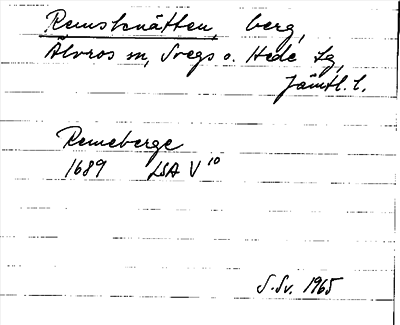 Remsknätten, berg,
Älvros sn, Svegs o. Hede tg,
Jämtl. l.
Remeberge
1689 LSA V 10
S.Sv. 1965